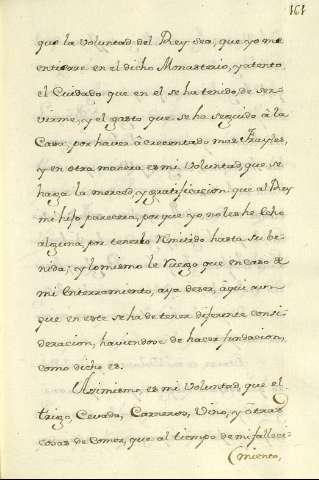 161
que la Voluntad del Rey sea, que yo me
entierre en el dicho Monasterio, y atento
el Cuidado que en el se ha tenido, de ser-
virme, y el gasto que se ha seguido à la
Casa, por haver àcrecentado mas Frayles,
y en otra manera es mi Voluntad, que se
haga la merced, y gratificacion que al Rey
mi hijo parecera, porque yo no les he hecho
alguna, por tenerlo remitido hasta su be-
nida; y lo mismo le ruego que en caso de
mi Enterramiento, aya de ser, àqui aun-
que en este se ha de tener diferente consi-
deracion, haviendose de hacer fundacion,
como dicho es.
Assimismo, es mi Voluntad, que el
trigo, Cevada, Carneros, Vino, y ôtras
cosas de Comer, que al tiempo de mi falleci-
miento,